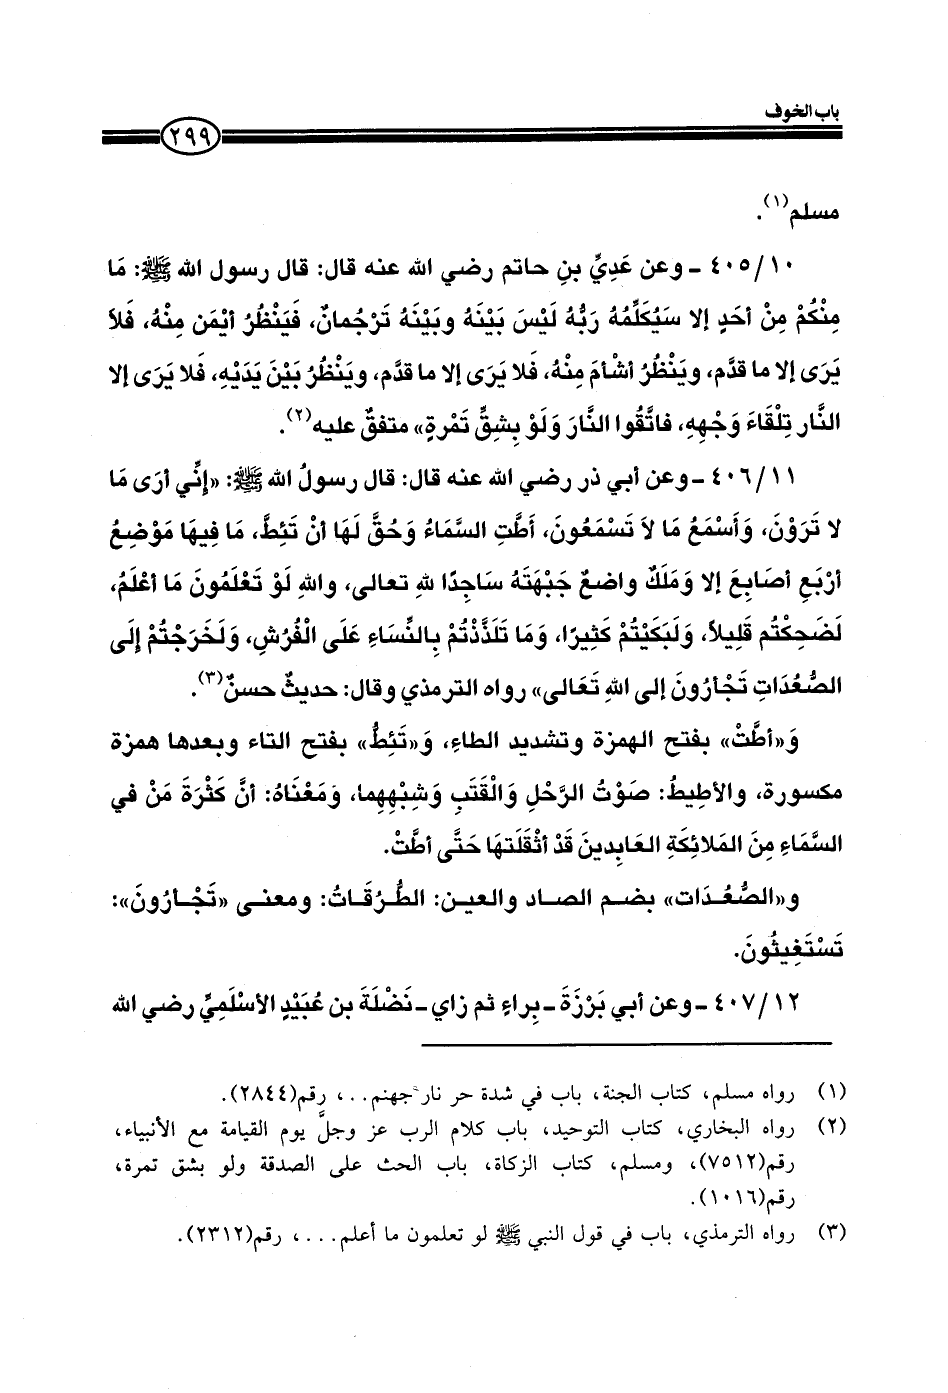 باب الخوف
٢٩٩
مسلم(١).
٤٠٥/١٠ ـ وعن عَدِيِّ بنِ حاتم رضي الله عنه قال: قال رسول الله ﷺ: مَا
مِنْكُمْ مِنْ أحَدٍ إلا سَيُكَلِّمُهُ رَبُّهُ لَيْسَ بَيْنَهُ وبَيْنَهُ تَرْجُمانٌ، فَيَنْظُرُ أيْمَن مِنْهُ، فَلاَ
يَرَى إلا ما قدَّم، ويَنْظُرُ أشْأمَ مِنْهُ، فَلا يَرَى إلا ما قدَّم، وينْظُرُ بَيْنَ يَدَيْهِ، فَلا يَرَى إلا
النَّار تِلْقَاءَ وَجْهِهِ، فاتَّقُوا النَّارَ وَلَوْ بِشِقِّ تَمْرةٍ» متفقٌ عليه(٢).
٤٠٦/١١ ـ وعن أبي ذر رضي الله عنه قال: قال رسولُ الله ﷺ: «إنِّي أرَى مَا
لا تَرَوْنَ، وَأسْمَعُ مَا لاَ تَسْمَعُونَ، أَطَّتِ السَّمَاءُ وَحُقَّ لَهَا أنْ تَئِطَّ، مَا فِيهَا مَوْضِعُ
أرْبَعِ أصَابِعَ إلا وَمَلَكٌ واضعٌ جَبْهَتَهُ سَاجِدًا للهِ تعالى، واللهِ لَوْ تَعْلَمُونَ مَا أعْلَمُ،
لَضَحِكْتُم قَلِيلاً، وَلَبَكَيْتُمْ كَثِيرًا، وَمَا تَلَذَّذْتُمْ بِالنِّسَاءِ عَلَى الْفُرُشِ، وَلَخَرَجْتُمْ إلَى
الصُّعُدَاتِ تَجْأرُونَ إلى اللهِ تَعَالى» رواه الترمذي وقال: حديثٌ حسنٌ(٣).
وَ«أطَّتْ» بفتح الهمزة وتشديد الطاءِ، وَ«تَئِطُّ» بفتح التاء وبعدها همزة
مكسورة، والأطيطُ: صَوْتُ الرَّحْلِ وَالْقَتَبِ وَشِبْهِهِما، وَمَعْنَاهُ: أنَّ كَثْرَةَ مَنْ في
السَّمَاءِ مِنَ المَلائِكَةِ العَابِدينَ قَدْ أثْقَلَتهَا حَتَّى أطَّتْ.
و«الصُّعُدَات» بضم الصاد والعين: الطُّرُقَاتُ: ومعنى «تَجْأرُونَ»:
تَسْتَغِيثُونَ.
٤٠٧/١٢ ـ وعن أبي بَرْزَةَ ـ بِراءٍ ثم زاي ـ نَضْلَةَ بن عُبَيْدٍ الأسْلَمِيِّ رضي الله
(١) رواه مسلم، كتاب الجنة، باب في شدة حر نار جهنم...، رقم(٢٨٤٤).
(٢) رواه البخاري، كتاب التوحيد، باب كلام الرب عز وجلَّ يوم القيامة مع الأنبياء،
رقم(٧٥١٢)، ومسلم، كتاب الزكاة، باب الحث على الصدقة ولو بشق تمرة،
رقم(١٠١٦).
(٣) رواه الترمذي، باب في قول النبي ﷺ لو تعلمون ما أعلم...، رقم(٢٣١٢).